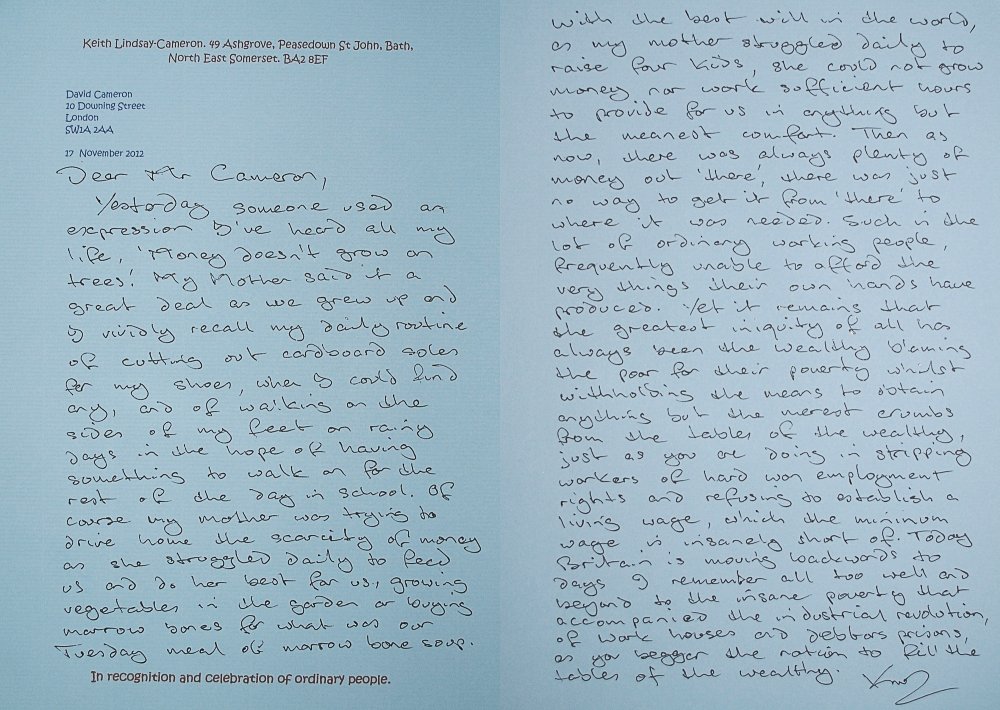 Keith Lindsay-Cameron. 49 Ashgrove, Peasedown St John, Bath,
North East Somerset. BA2 8EF
David Cameron
10 Downing Street
London
SW1A 2AA
17 November 2012
Dear Mr Cameron,
Yesterday someone used an
expression I've heard all my
life, 'Money doesn't grow on
trees.' My Mother said it a
great deal as we grew up and
I vividly recall my daily routine
of cutting out cardboard soles
for my shoes, when I could find
any, and of walking on the
sides of my feet on rainy
days in the hope of having
something to walk on for the
rest of the day in school. Of
course my mother was trying to
drive home the scarcity of money
as she struggled daily to feed
us and do her best for us, growing
vegetables in the garden or buying
marrow bones for what was our
Tuesday meal of marrow bone soup.
In recognition and celebration of ordinary people.
With the best will in the world,
as my mother struggled daily to
raise four kids, she could not grow
money nor work sufficient hours
to provide for us in anything but
the meanest comfort. Then as
now, there was always plenty of
money out 'there', there was just
no way to get it from 'there' to
where it was needed. Such is the
lot of ordinary working people,
frequently unable to afford the
very things their own hands have
produced. Yet it remains that
the greatest iniquity of all has
always been the wealthy blaming
the poor for their poverty whilst
withholding the means to obtain
anything but the merest crumbs
from the tables of the wealthy,
just as you are doing in stripping
workers of hard won employment
rights and refusing to establish a
living wage, which the minimum
wage is insanely short of. Today
Britain is moving backwards to
days I remember all too well and
beyond to the insane poverty that
accompanied the industrial revolution,
of work houses and debtors prisons,
as you begger the nation to fill the
tables of the wealthy.